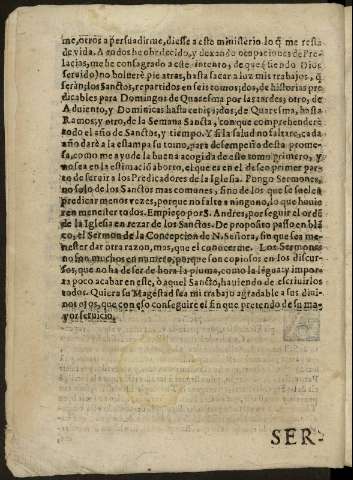 me, otros a persuadirme, diesse a este ministerio lo q̃ me resta
de vida. A todos he obedecido, y dexando ocupaciones de Pre-
lacias, me he consagrado a este intento; de que (siendo Dios
seruido) no bolueré pie atras, hasta sacar a luz mis trabajos, q̃
seran; los Sanctos, repartidos en seis tomos; dos, de historias pre-
dicables para Domingos de Quaresma por las tardes; otro, de
Aduiento, y Dominicas hasta ceniça; dos, de Quaresma, hasta
Ramos; y otro, de la Semana Sancta, con que comprehenderè
todo el año de Sanctos, y tiempo. Y si la salud no faltare, cada
año darè a la estampa su tomo, para desempeño desta prome-
sa, como me ayude la buena acogida de este tomo primero, y
no sea en la estimacion aborto, el que es en el desseo primer par-
to de seruir a los Predicadores de la Iglesia. Pongo Sermones,
no solo de los Sanctos mas comunes, sino de los que se suelen
predicar menos vezes, porque no falte a ninguno, lo que houie
ren menester todos. Empieço por S. Andres, por seguir el ordẽ
de la Iglesia en rezar de los Sanctos. De proposito passo en blã
co, el Sermon de la Concepcion de N. Señora, sin que sea me-
nester dar otra razon, mas, que el conocerme. Los Sermones
no son muchos en numero, porque son copiosos en los discur-
sos, que no ha de ser de hora la pluma, como la légua; y impor-
ta poco acabar en este, ò aquel Sancto, hauiendo de escriuirlos
todos. Quiera su Magestad sea mi trabajo agradable a sus diui-
nos ojos, que con esso conseguire el fin que pretendo de su ma-
yor seruicio.
SER-